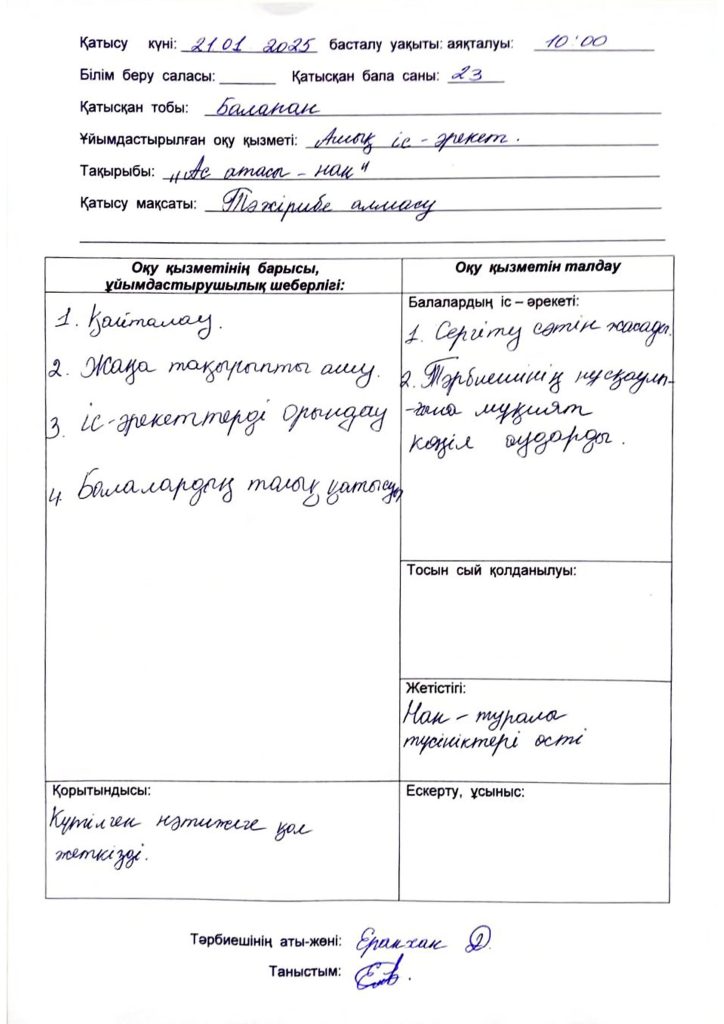 Қатысу күні: 21.01 2025 басталу уақыты: аяқталуы: 10:00
Білім беру саласы: Қатысқан бала саны: 23
Қатысқан тобы: Балапан
Ұйымдастырылған оқу қызметі: Ашық іс-әрекет.
Тақырыбы: "Ас атасы - нан"
Қатысу мақсаты: Тәжірибе алмасу
Оқу қызметінің барысы,
ұйымдастырушылық шеберлігі:
1. Қайталау.
2. Жаңа тақырыпты ашу.
3. іс-әрекеттерді орындау
4. Балалардың толық қатысуы
Қорытындысы:
Күтілген нәтижеге қол
жеткізді.
Оқу қызметін талдау
Балалардың іс – әрекеті:
1. Сергіту сәтін жасады.
2. Тәрбиешінің нұсқаулы-
-ғына мұқият
көңіл аударды.
Тосын сый қолданылуы:
Жетістігі:
Нан - туралы
түсініктері өсті
Ескерту, ұсыныс:
Тәрбиешінің аты-жөні: Еранхан Д.
Таныстым: